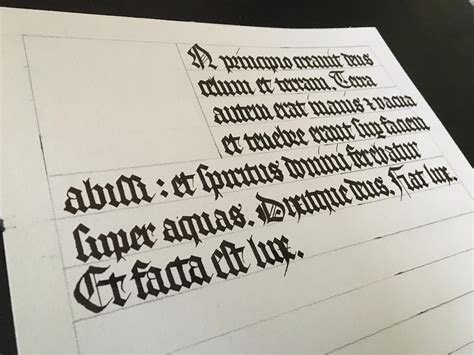 N principio creauit deus
celum et terram. Terra
autem erat inanis ⁊ vacua
et tenebre erant sup faciem
abissi : et spiritus domini ferebatur
super aquas. Dixitque deus. Fiat lux.
Et facta est lux.